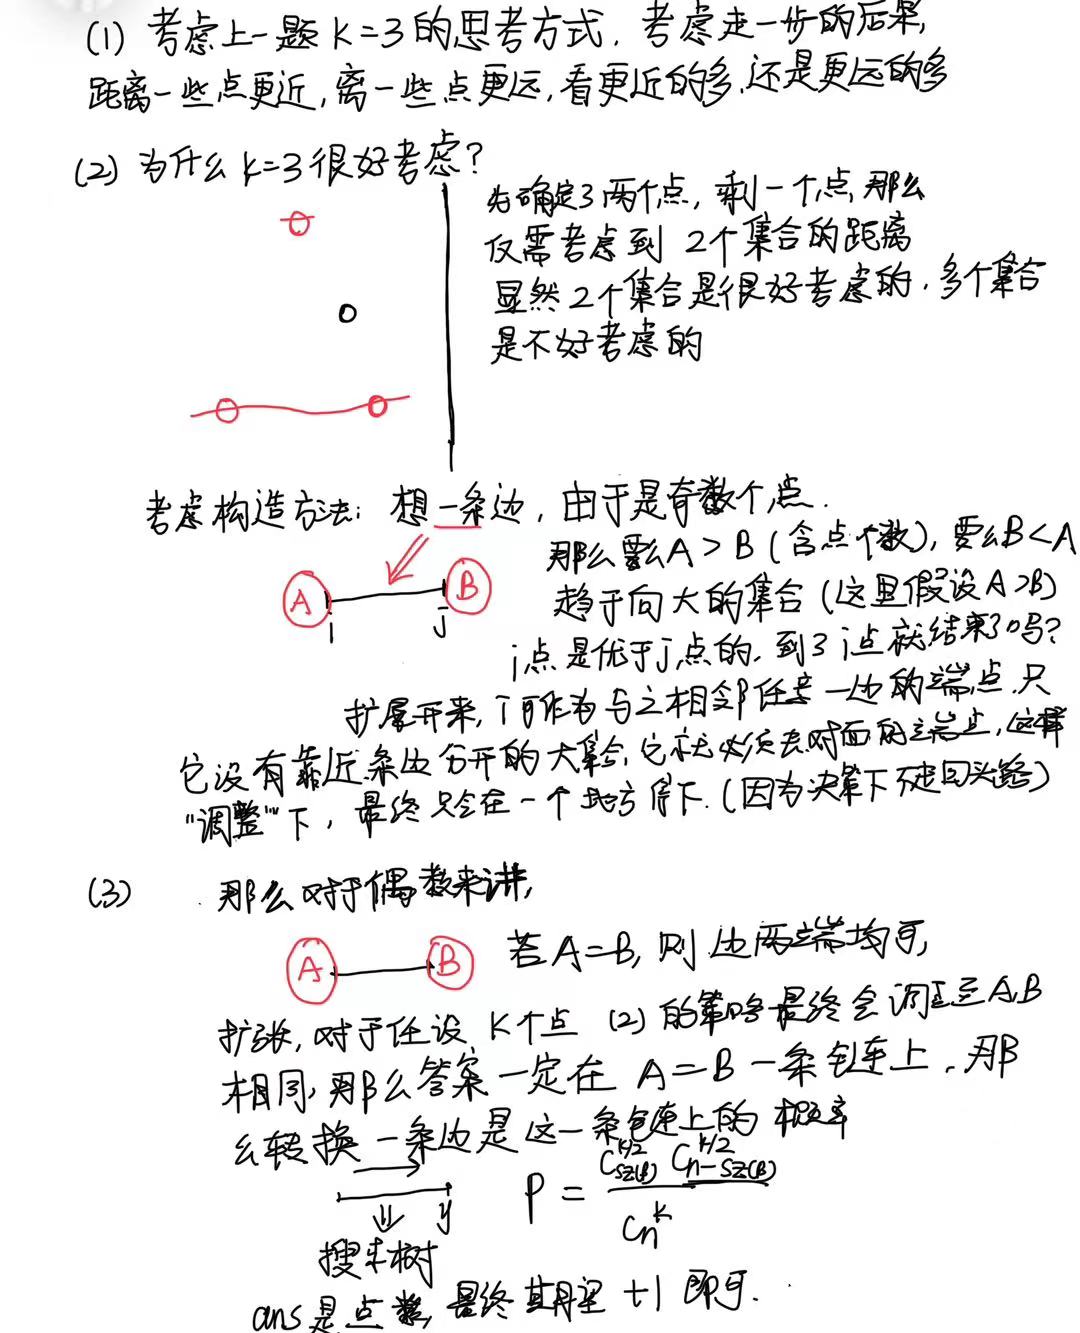 (1) 考虑上一题 K=3 的思考方式，考虑走一步的后果，
距离一些点更近，离一些点更远，看更近的多，还是更远的多
(2) 为什么 K=3 很好考虑?
先确定了两个点，剩一个点，那么
仅需考虑到 2个集合的距离
显然 2个集合是很好考虑的，多个集合
是不好考虑的
考虑构造方法: 想一条边，由于是奇数个点.
那么要么A > B (含点个数)，要么B<A
A
B
i
j
趋于向大的集合 (这里假设A>B)
i点是优于j点的，到了i点就结束了吗?
扩展开来，i可作为与之相邻任意一边的端点，只
它没有靠近条边分开的大集合，它就必须去对面的端点，这样
"调整"下，最终只会在一个地方停下. (因为决策下不走回头路)
(3) 那么对于偶数来讲，
A
B
若A=B，则边两端均可，
扩张，对于任设 K个点 (2) 的策略最终会调整至A,B
相同，那么答案一定在 A=B 一条链上. 那
么转换一条边是这一条链上的概率
y
P = C_{sz(B)}^{k/2} C_{n-sz(B)}^{k/2} / C_n^k
搜索树
ans是点数，最终期望 +1 即可.